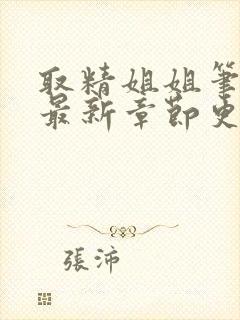 取精姐姐筆
最新章節史
張沛